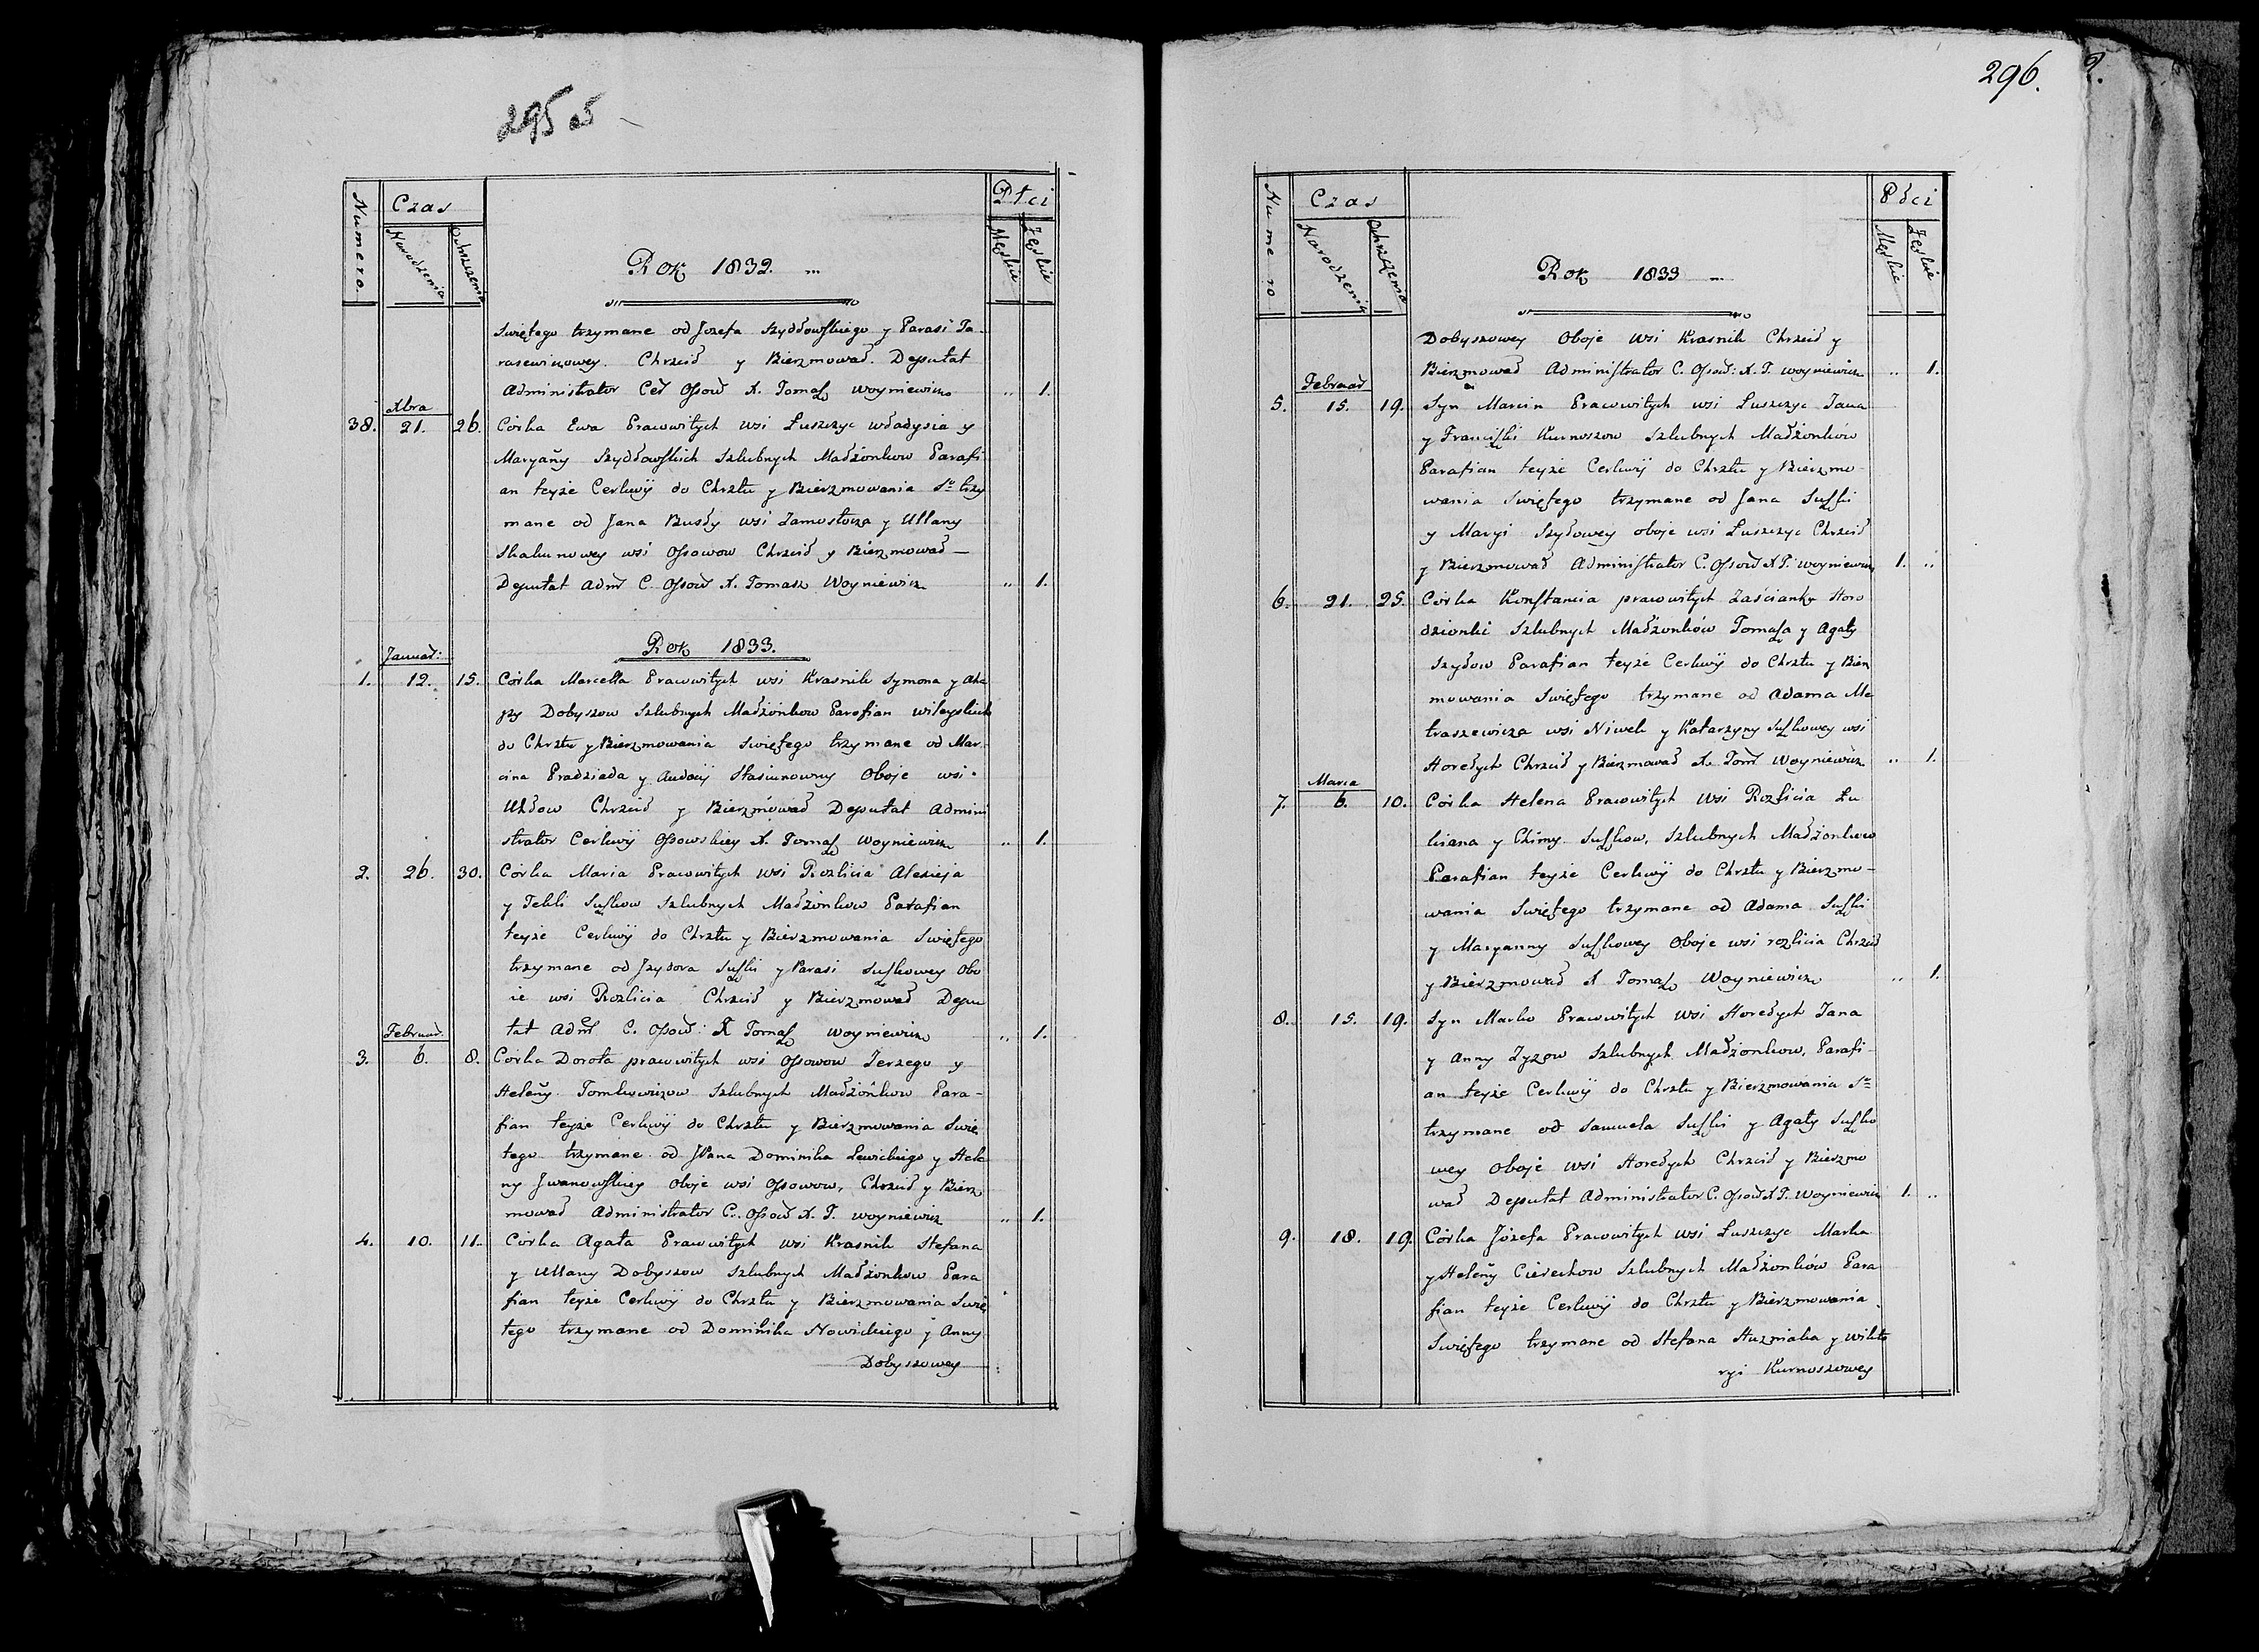 295 o5
Numero
Czas
Płci
Narodzenia
Ochrzczenia
Męskie
Żęskie
Rok 1832.
Swiętego trzymane od Jozefa Szydłowskiego y Parasi Ta-
rasewiczowey. Chrzcił y Bierzmował. Deputat
Administrator Cer Ossow X. Tomasz Woyniewicz .. 1.
Xbra
38. 21. 26. Corka Ewa Pracowitych wsi Łuszczyc Władysia y
Maryañy Szydłowskich Szlubnych Małżonkow Parafi
an teyże Cerkwÿ do Chrztu y Bierzmowania Sº trzy
mane od Jana Busły wsi Zamostocza y Ullany
Skakunowey wsi Ossowow Chrzcił y Bierzmował —
Deputat Adm̃ C. Ossow X. Tomasz Woyniewicz .. 1.
Rok 1833.
Januar:
1. 12. 15. Corka Marcella Pracowitych wsi Krasnik Symona y Aha
py Dobyszow Szlubnych Małżonkow Parafian wileyskich
do Chrztu y Bierzmowania Swiętego trzymane od Mar-
cina Pradziada y Audocÿ Stasiunowny Oboje wsi
Uhłow Chrzcił y Bierzmował Deputat Admini
strator Cerkwÿ Ossowskiey X. Tomasz Woyniewicz .. 1.
2. 26. 30. Corka Maria Pracowitych wsi Rozlicia Alexieja
y Tekli Suszkow Szlubnych Małżonkow Parafian
teyże Cerkwÿ do Chrztu y Bierzmowania Swiętego
trzymane od Jzydora Suszki y Parasi Suszkowey Obo
ie wsi Rozlicia Chrzcił y Bierzmował Depu
tat Adm̃ C. Ossow: X Tomasz Woyniewicz .. 1.
Februar
3. 6. 8. Corka Dorota pracowitych wsi Ossowow Jerzego y
Heleñy Tomkowiczow Szlubnych Małżonkow Para-
fian teyże Cerkwÿ do Chrztu y Bierzmowania Swię
tego trzymane od JPana Dominika Lewickiego y Hele
ny Jwanowskiey Oboje wsi Ossowow, Chrzcił y Bierz
mował Administrator C. Ossow X. T. Woyniewicz .. 1.
4. 10. 11. Corka Agata Pracowitych wsi Krasnik Stefana
y Ullany Dobyszow Szlubnych Małżonkow Para
fian teyże Cerkwÿ do Chrztu y Bierzmowania Swię
tego trzymane od Dominika Nowickiego y Anny
Dobyszowey
296.
2.
Numero
Czas
Płci
Narodzenia
Ochrzczenia
Męskie
Żęskie
Rok 1833
Dobyszowey Oboje wsi Krasnik Chrzcił y
Bierzmował Administrator C. Ossow: X. T. Woyniewicz .. 1.
Februar
5. 15. 19. Syn Marcin Pracowitych wsi Łuszczyc Jana
y Franciszki Kurnoszow Szlubnych Małżonków
Parafian teyże Cerkwÿ do Chrztu y Bierzmo-
wania Swiętego trzymane od Jana Suszki
y Maryi Szydowey oboje wsi Łuszczyc Chrzcił
y Bierzmował Administrator C. Ossow X T. Woyniewicz 1. ..
6. 21. 25. Corka Konstancia pracowitych Zaścianku Horo
dzionki Szlubnych Małżonków Tomasza y Agaty
Szydow Parafian teyże Cerkwÿ do Chrztu y Bierz
mowania Swiętego trzymane od Adama Ma
traszewicza wsi Niwek y Katarzyny Suszkowey wsi
Horełych Chrzcił y Bierzmował X. Tom Woyniewicz .. 1.
Marca
7. 6. 10. Corka Helena Pracowitych wsi Rozlicia Łu
kiana y Chimy Suszkow, Szlubnych Małżonkow
Parafian teyże Cerkwÿ do Chrztu y Bierzmo-
wania Swiętego trzymane od Adama Suszki
y Maryanny Suszkowey Oboje wsi rozlicia Chrzcił
y Bierzmował X Tomasz Woyniewicz .. 1.
8. 15. 19. Syn Marko Pracowitych wsi Horełych Jana
y Anny Zyzow Szlubnych Małżonkow, Parafi-
an teyże Cerkwÿ do Chrztu y Bierzmowania Sº
trzymane od Samuela Suszki y Agaty Suszko
wey Oboje wsi Horełych Chrzcił y Bierzmo
wał Deputat Administrator C. Ossow X T. Woyniewicz 1. ..
9. 18. 19. Corka Józefa Pracowitych wsi Łuszczyc Marka
y Heleñy Cierechow Szlubnych Małżonków Para
fian teyże Cerkwÿ do Chrztu y Bierzmowania
Swiętego trzymane od Stefana Huzniaka y Wikto
ryi Kurnoszowey